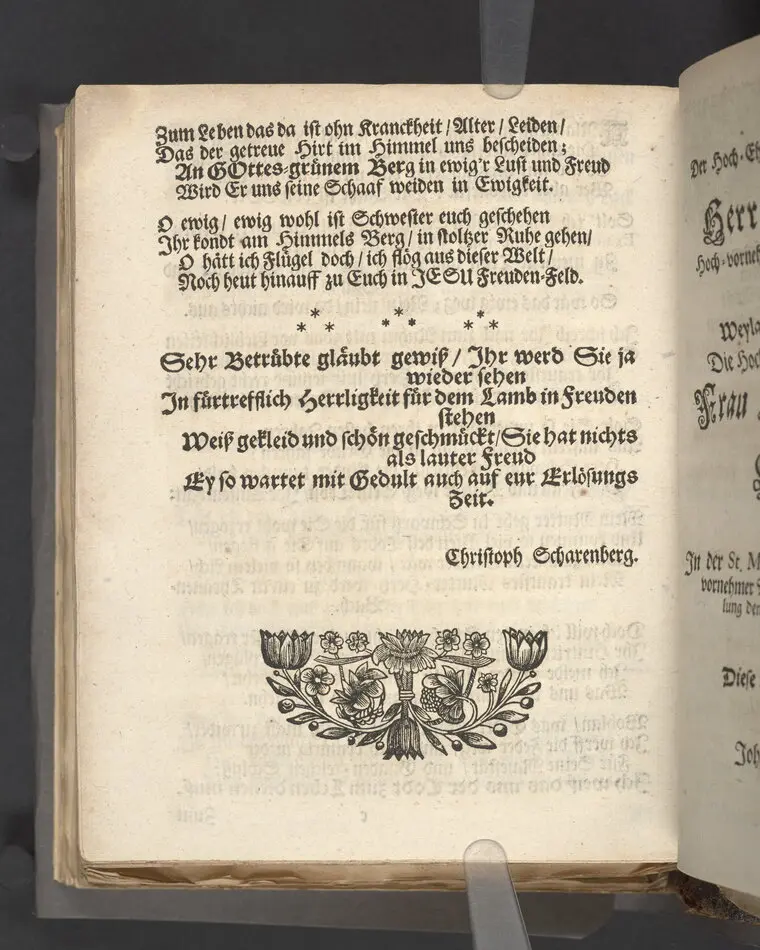 Zum Leben das da ist ohn Kranckheit / Alter / Leiden /
Das der getreue Hirt im Himmel uns bescheiden;
An GOttes-grünem Berg in ewig'r Lust und Freud
Wird Er uns seine Schaaf weiden in Ewigkeit.
O ewig / ewig wohl ist Schwester euch geschehen
Ihr kondt am Himmels Berg / in stoltzer Ruhe gehen /
O hätt ich Flügel doch / ich flög aus dieser Welt /
Noch heut hinauff zu Euch in JESU Freuden-Feld.
* * * * * * * * *
Sehr Betrübte gläubt gewiß / Ihr werd Sie ja
wieder sehen
In fürtrefflich Herrligkeit für dem Lamb in Freuden
stehen
Weiß gekleid und schön geschmückt / Sie hat nichts
als lauter Freud
Ey so wartet mit Gedult auch auf eur Erlösungs
Zeit.
Christoph Scharenberg.
Der Hoch-
Herr
Hoch-
Weyla
Die Hoc
Frau
In der St. M
vornehmer
lung de
Diese
Joh